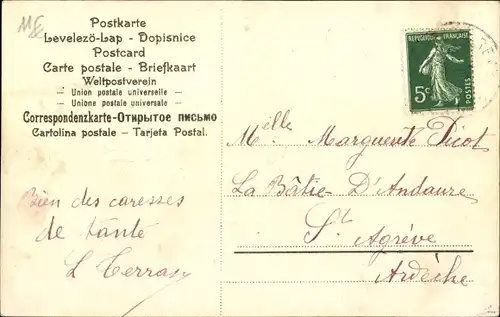 Postkarte
Levelezö-Lap - Dopisnice
Postcard
Carte postale - Briefkaart
Weltpostverein
- Union postale universelle -
- Unione postale universale -
Correspondenzkarte-Открытое письмо
Cartolina postale - Tarjeta Postal.
REPUBLIQUE FRANÇAISE
5c
POSTES
Melle Marguerite Picot
La Bâtie D'Andaure
St Agrève
Ardèche
Bien des caresses
de tante
L Terras